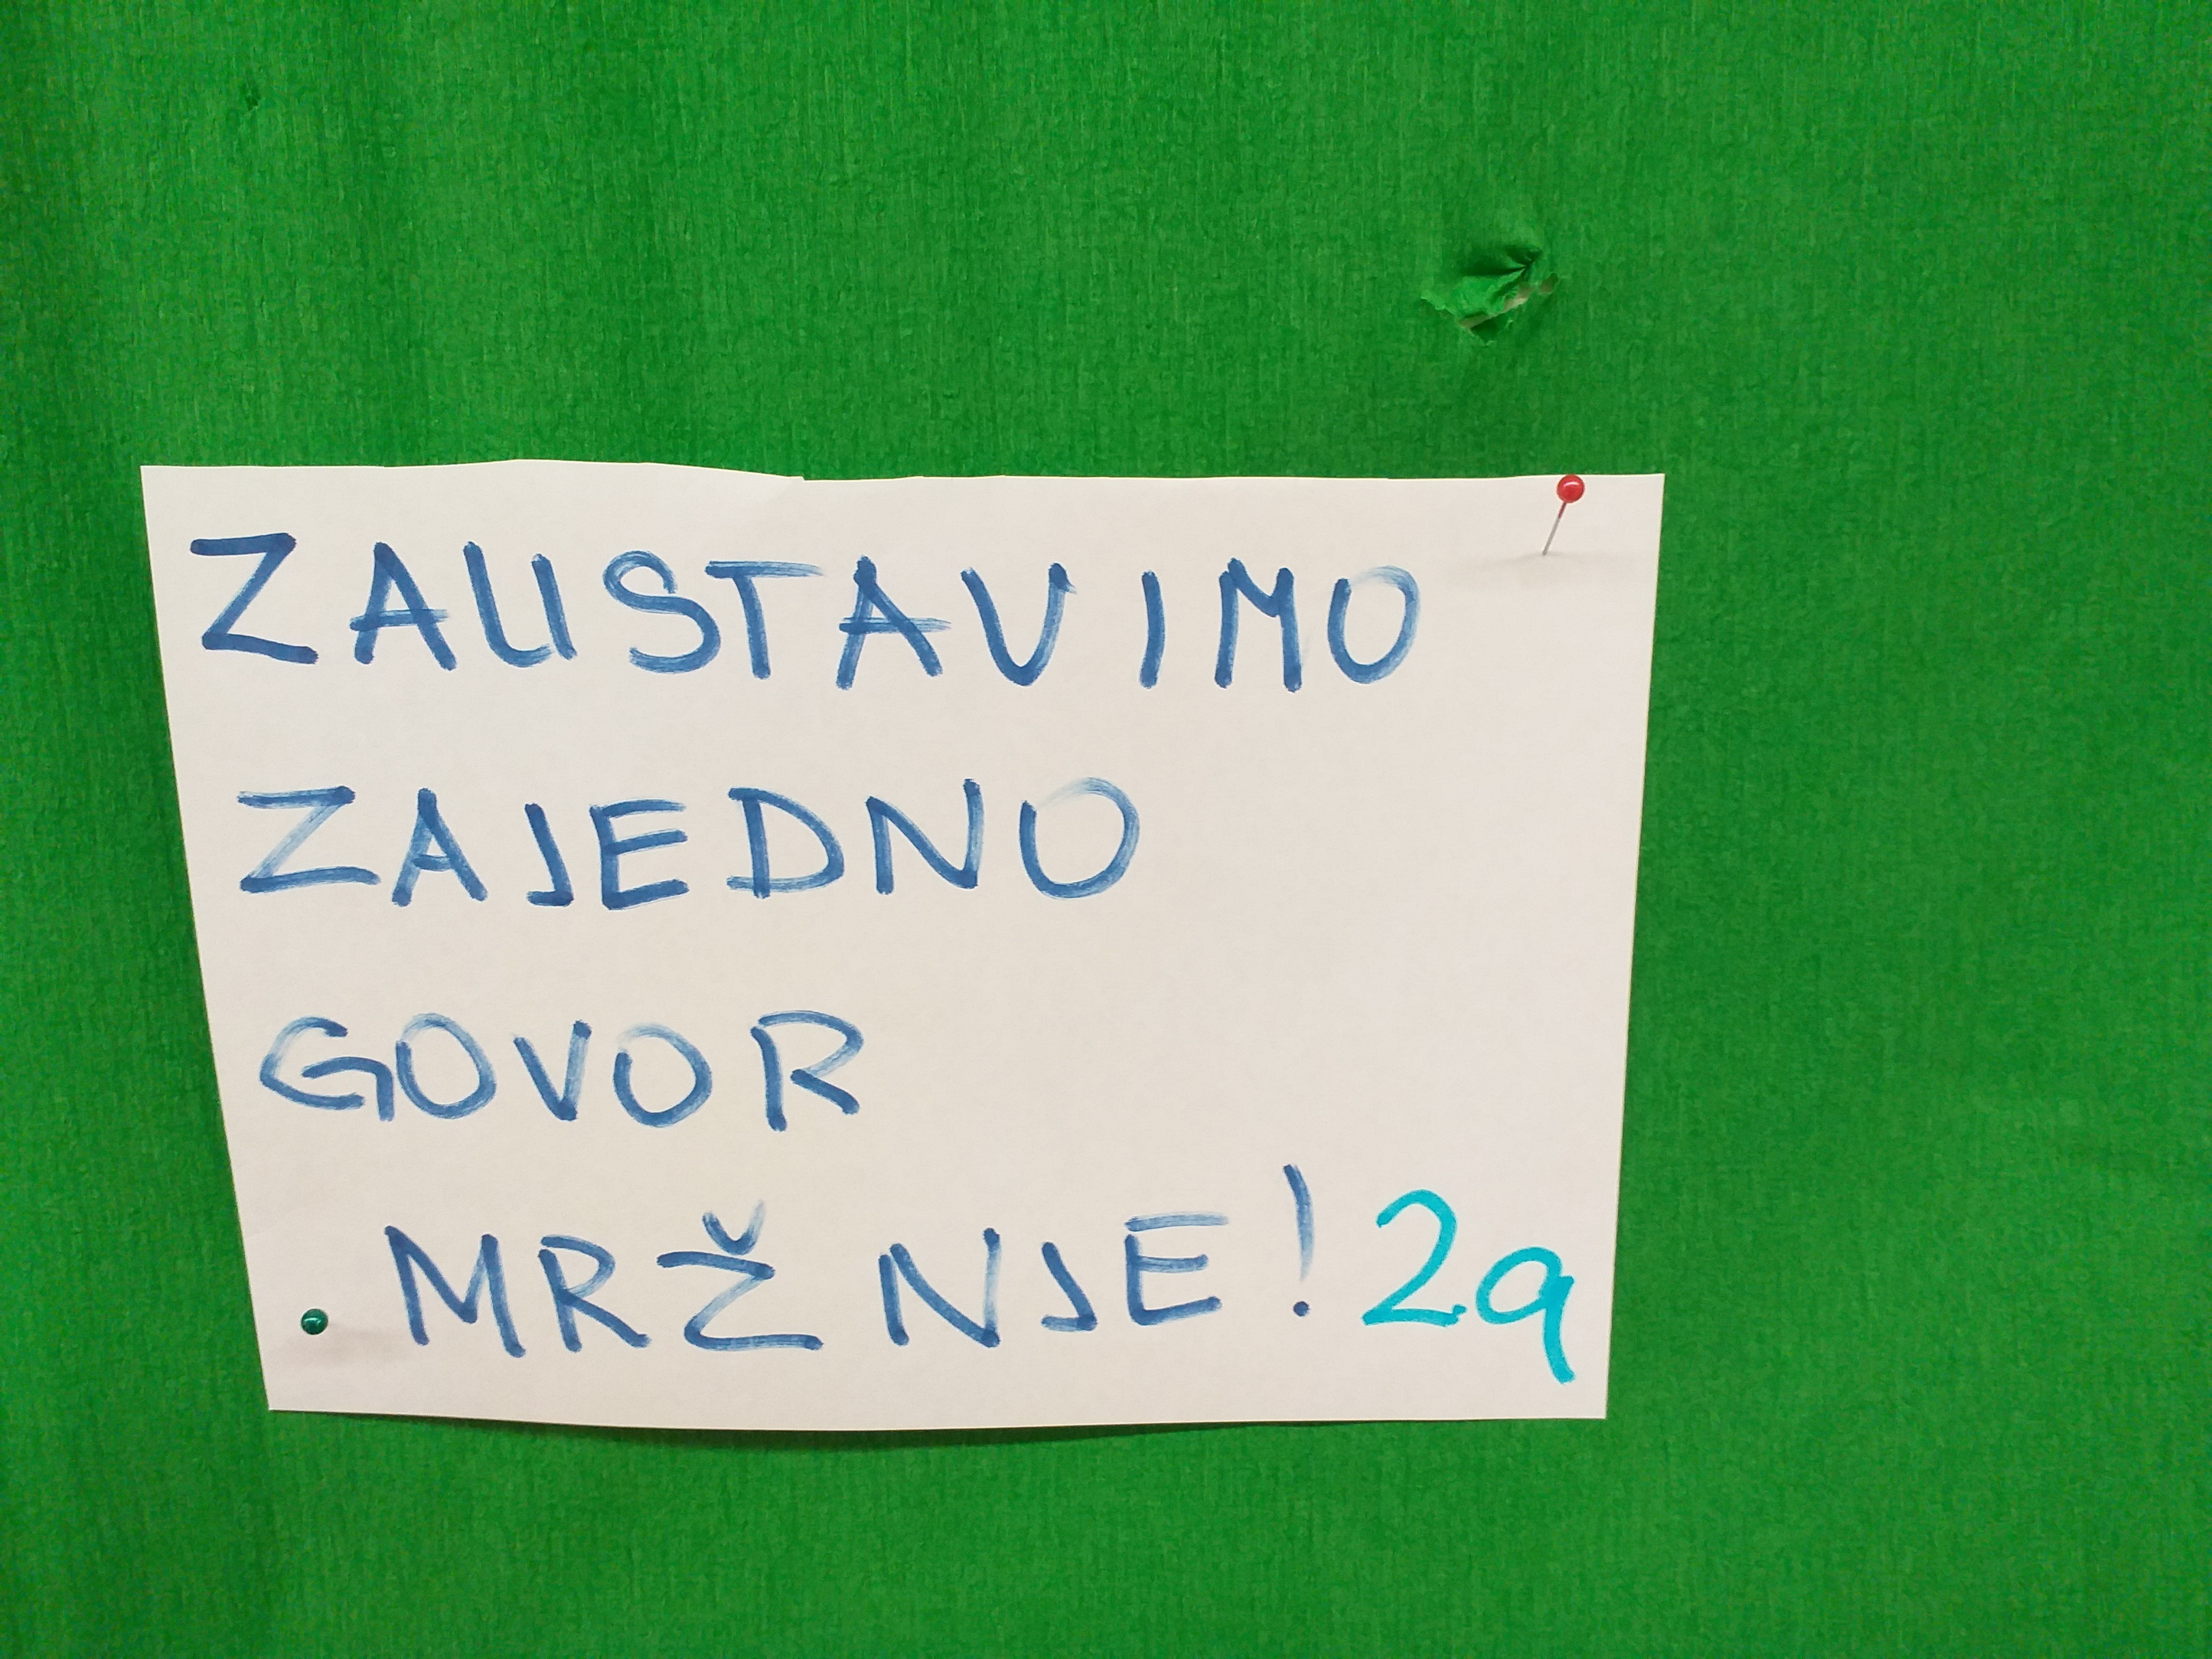 ZAUSTAVIMO
ZAJEDNO
GOVOR
MRŽNJE! 2a